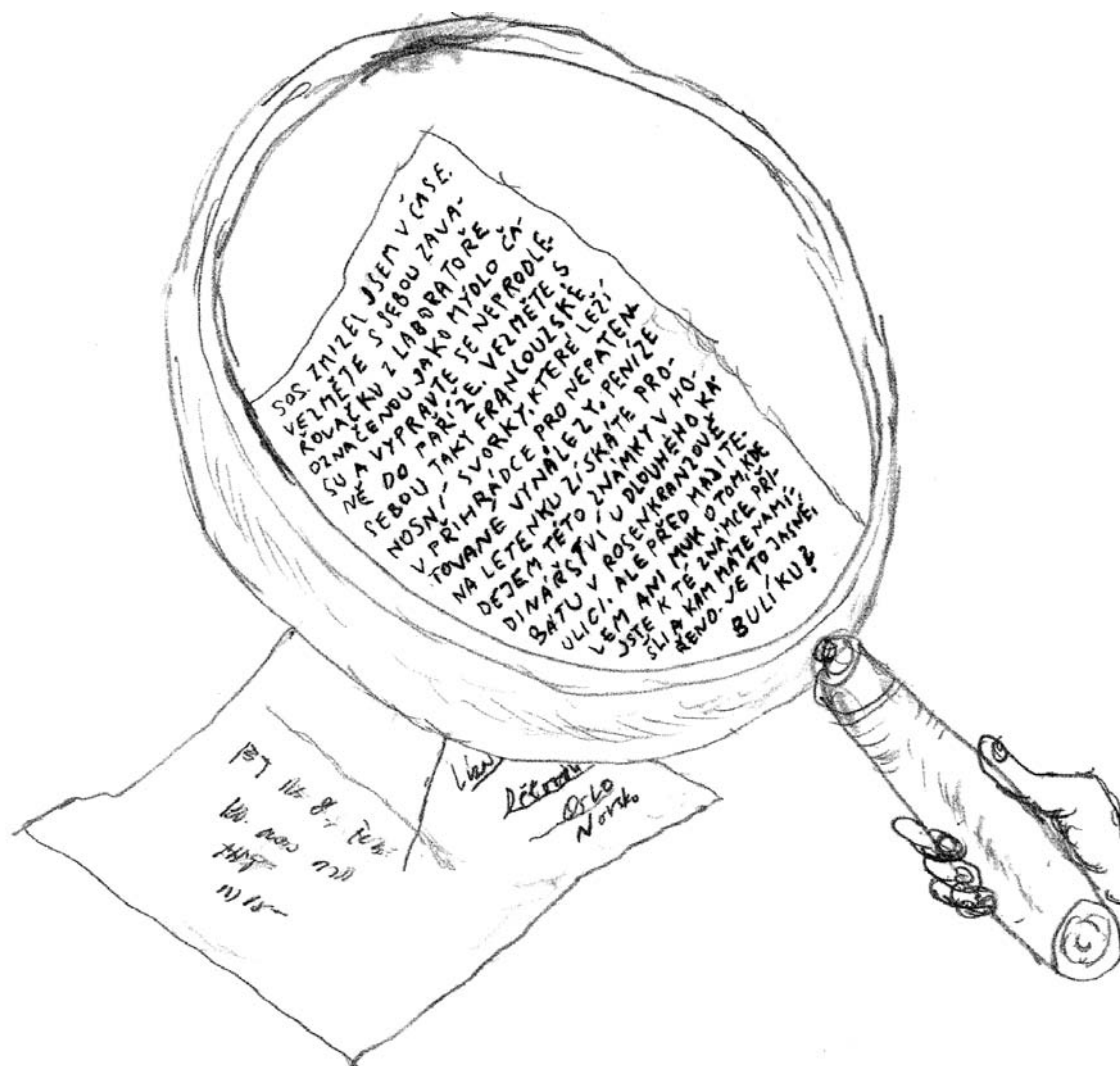 SOS. ZMIZEL JSEM V ČASE.
VEZMĚTE S SEBOU ZAVA-
ŘOVAČKU Z LABORATOŘE
OZNAČENOU JAKO MÝDLO ČA-
SU A VYPRAVTE SE NEPRODLE-
NĚ DO PAŘÍŽE. VEZMĚTE S
SEBOU TAKY FRANCOUZSKÉ
NOSNÍ SVORKY, KTERÉ LEŽÍ
V PŘIHRÁDCE PRO NEPATEN-
TOVANÉ VYNÁLEZY. PENÍZE
NA LETENKU ZÍSKÁTE PRO-
DEJEM TÉTO ZNÁMKY V HO-
DINÁŘSTVÍ U DLOUHÉHO KA-
BÁTU V ROSENKRANZOVĚ
ULICI. ALE PŘED MAJITE-
LEM ANI MUK O TOM, KDE
JSTE K TÉ ZNÁMCE PŘI-
ŠLI A KAM MÁTE NAMÍ-
ŘENO. JE TO JASNÉ,
BULÍKU?
OSLO
Norsko